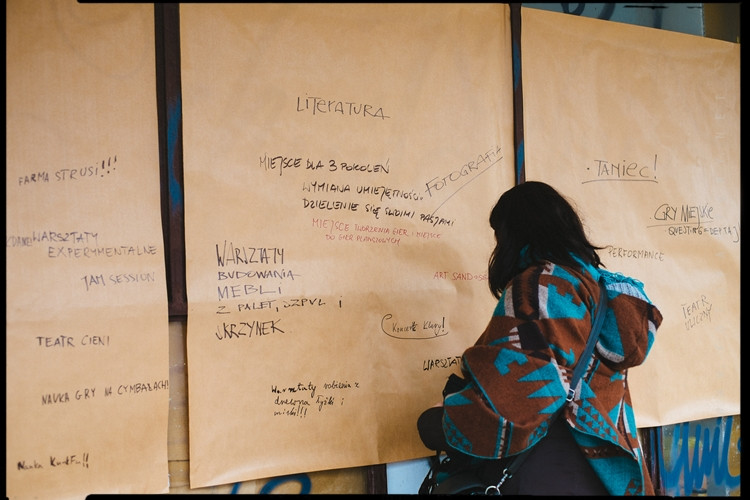 FARMA STRUSI!!!
WARSZTATY
EXPERYMENTALNE
JAM SESSION
TEATR CIENI
NAUKA GRY NA CYMBAŁACH!
Nauka KungFu!!
LITERATURA
MIEJSCE DLA 3 POKOLEŃ
WYMIANA UMIEJĘTNOŚCI
DZIELENIE SIĘ SWOIMI PASJAMI
FOTOGRAFIA
MIEJSCE TWORZENIA GIER I MIEJSCE
DO GIER PLANSZOWYCH
WARSZTATY
BUDOWANIA
MEBLI
Z PALET, I
SKRZYNEK
ART SAND
WARSZTATY
Warsztaty robienia z
drewna łyżki i
miski!!!
TANIEC!
GRY MIEJSKIE
PERFORMANCE
TEATR
ULICZNY